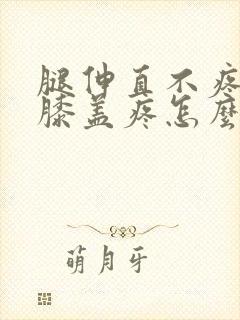 腿伸直不疼
膝盖疼怎麽
萌月牙